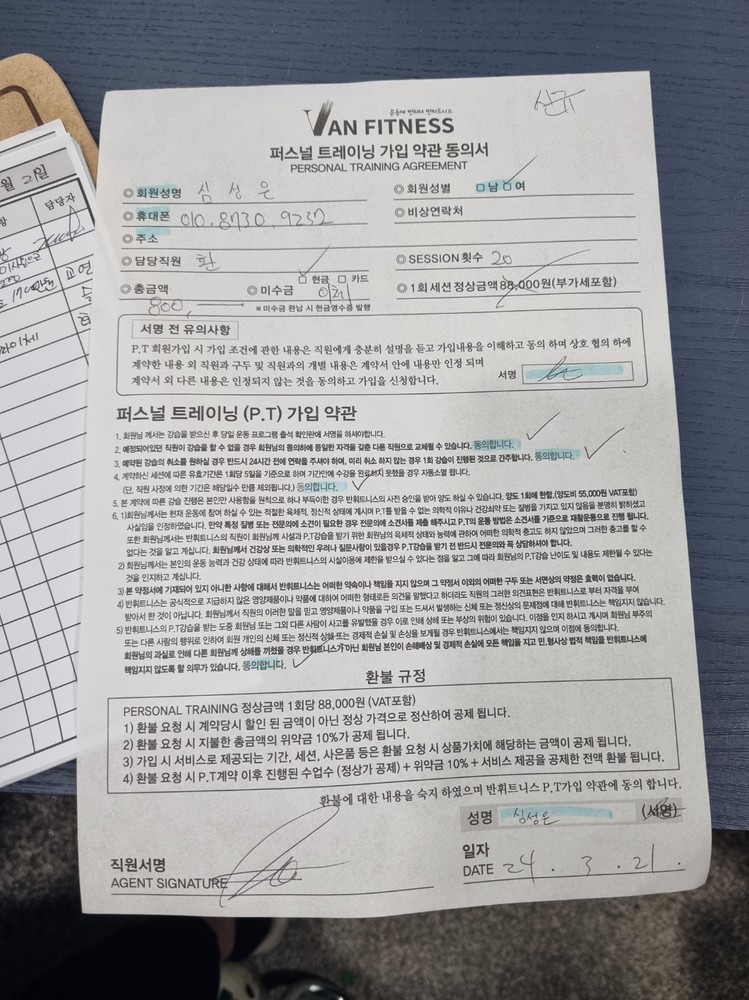 신규
운동에 반하다 반휘트니스
VAN FITNESS
퍼스널 트레이닝 가입 약관 동의서
PERSONAL TRAINING AGREEMENT
◎ 회원성명 심성은 ◎ 회원성별 □ 남 □ 여
◎ 휴대폰 010.8730.9232 ◎ 비상연락처
◎ 주소
◎ 담당직원 환 ◎ SESSION 횟수 20
◎ 총금액 800, ◎ 미수금 □ 현금 □ 카드 이체 ◎ 1회 세션 정상금액 88,000원(부가세포함)
※ 미수금 완납 시 현금영수증 발행
서명 전 유의사항
P.T 회원가입 시 가입 조건에 관한 내용은 직원에게 충분히 설명을 듣고 가입내용을 이해하고 동의 하며 상호 협의 하에
계약한 내용 외 직원과 구두 및 직원과의 개별 내용은 계약서 안에 내용만 인정 되며
계약서 외 다른 내용은 인정되지 않는 것을 동의하고 가입을 신청합니다. 서명
퍼스널 트레이닝 (P.T) 가입 약관
1. 회원님 께서는 강습을 받으신 후 당일 운동 프로그램 출석 확인란에 서명을 하셔야합니다.
2. 예정되어있던 직원이 강습을 할 수 없는 경우 회원님의 동의하에 동일한 자격을 갖춘 다른 직원으로 교체될 수 있습니다. 동의합니다.
3. 예약된 강습의 취소를 원하실 경우 반드시 24시간 전에 연락을 주셔야 하며, 미리 취소 하지 않는 경우 1회 강습이 진행된 것으로 간주합니다. 동의합니다.
4. 계약하신 세션에 따른 유효기간은 1회당 5일을 기준으로 하며 기간안에 수강을 완료하지 못했을 경우 자동소멸 됩니다.
(단, 직원 사정에 의한 기간은 해당일수 만큼 제외됩니다.) 동의합니다.
5. 본 계약에 따른 강습 진행은 본인만 사용함을 원칙으로 하나 부득이한 경우 반휘트니스의 사전 승인을 받아 양도 하실 수 있습니다. 양도 1회에 한함.(양도비 55,000원 VAT포함)
6. 1)회원님께서는 현재 운동에 참여 하실 수 있는 적절한 육체적, 정신적 상태에 계시며 P.T를 받을 수 없는 의학적 이유나 건강쇠약 또는 질병을 가지고 있지 않음을 분명히 밝히셨고
사실임을 인정하였습니다. 만약 특정 질병 또는 전문의에 소견이 필요한 경우 전문의에 소견서를 제출 해주시고 P.T의 운동 방법은 소견서를 기준으로 재활운동으로 진행 됩니다.
또한 회원님께서는 반휘트니스의 직원이 회원님께 시설과 P.T강습을 받기 위한 회원님의 육체적 상태와 능력에 관하여 어떠한 의학적 충고도 하지 않았으며 그러한 충고를 할 수
없다는 것을 알고 계십니다. 회원님께서 건강상 또는 의학적인 우려나 질문사항이 있을경우 P.T강습을 받기 전 반드시 전문의와 꼭 상담하셔야 합니다.
2) 회원님께서는 본인의 운동 능력과 건강 상태에 따라 반휘트니스의 시설이용에 제한을 받으실 수 있다는 점을 알고 그에 따라 회원님의 P.T강습 난이도 및 내용도 제한될 수 있다는
것을 인지하고 계십니다.
3) 본 약정서에 기재되어 있지 아니한 사항에 대해서 반휘트니스는 어떠한 약속이나 책임을 지지 않으며 그 약정서 이외의 어떠한 구두 또는 서면상의 약정은 효력이 없습니다.
4) 반휘트니스는 공식적으로 지급하지 않은 영양제품이나 약물에 대하여 어떠한 형태로든 의견을 말했다고 하더라도 직원의 그러한 의견표현은 반휘트니스로 부터 자격을 부여
받아서 한 것이 아닙니다. 회원님께서 직원의 이러한 말을 믿고 영양제품이나 약물을 구입 또는 드셔서 발생하는 신체 또는 정신상의 문제점에 대해 반휘트니스는 책임지지 않습니다.
5) 반휘트니스의 P.T강습을 받는 도중 회원님 또는 그외 다른 사람이 사고를 유발했을 경우 이로 인해 상해 또는 부상의 위험이 있습니다. 이점을 인지 하시고 계시며 회원님 부주의
또는 다른 사람의 행위로 인하여 회원 개인의 신체 또는 정신적 상해 또는 경제적 손실 및 손상을 보게될 경우 반휘트니스에서는 책임지지 않으며 이점에 동의합니다.
회원님의 과실로 인해 다른 회원님께 상해를 끼쳤을 경우 반휘트니스가 아닌 회원님 본인이 손해배상 및 경제적 손실에 모든 책임을 지고 민,형사상 법적 책임을 반휘트니스에
책임지지 않도록 할 의무가 있습니다. 동의합니다.
환불 규정
PERSONAL TRAINING 정상금액 1회당 88,000원 (VAT포함)
1) 환불 요청 시 계약당시 할인 된 금액이 아닌 정상 가격으로 정산하여 공제 됩니다.
2) 환불 요청 시 지불한 총금액의 위약금 10%가 공제 됩니다.
3) 가입 시 서비스로 제공되는 기간, 세션, 사은품 등은 환불 요청 시 상품가치에 해당하는 금액이 공제 됩니다.
4) 환불 요청 시 P.T계약 이후 진행된 수업수 (정상가 공제) + 위약금 10% + 서비스 제공을 공제한 전액 환불 됩니다.
환불에 대한 내용을 숙지 하였으며 반휘트니스 P.T가입 약관에 동의 합니다.
성명 심성은 (서명)
직원서명
AGENT SIGNATURE
일자
DATE 24. 3. 21.
월 21일
담당자